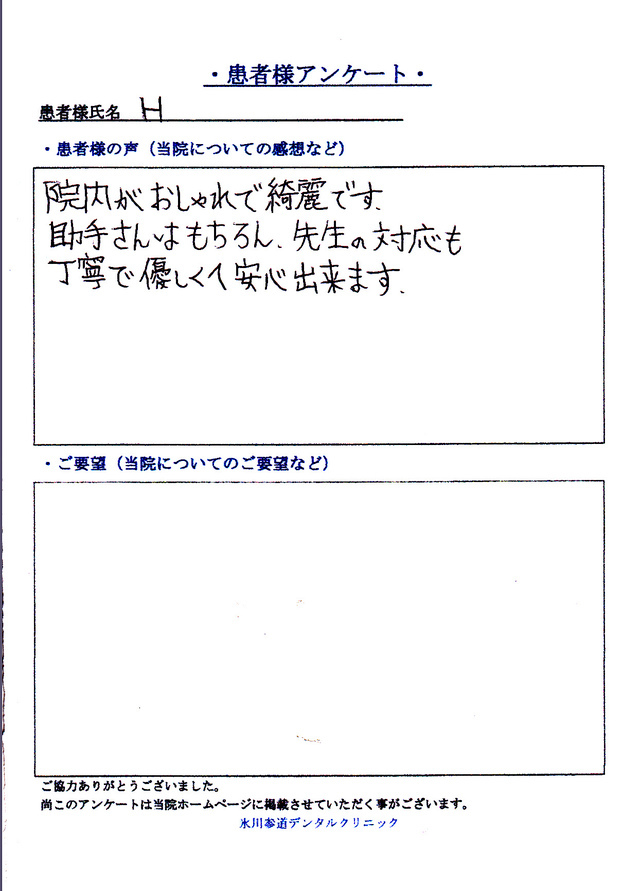 ・患者様アンケート・
患者様氏名 H
・患者様の声（当院についての感想など）
院内がおしゃれで綺麗です.
助手さんはもちろん、先生の対応も
丁寧で優しくて安心出来ます.
・ご要望（当院についてのご要望など）
ご協力ありがとうございました。
尚このアンケートは当院ホームページに掲載させていただく事がございます。
氷川参道デンタルクリニック